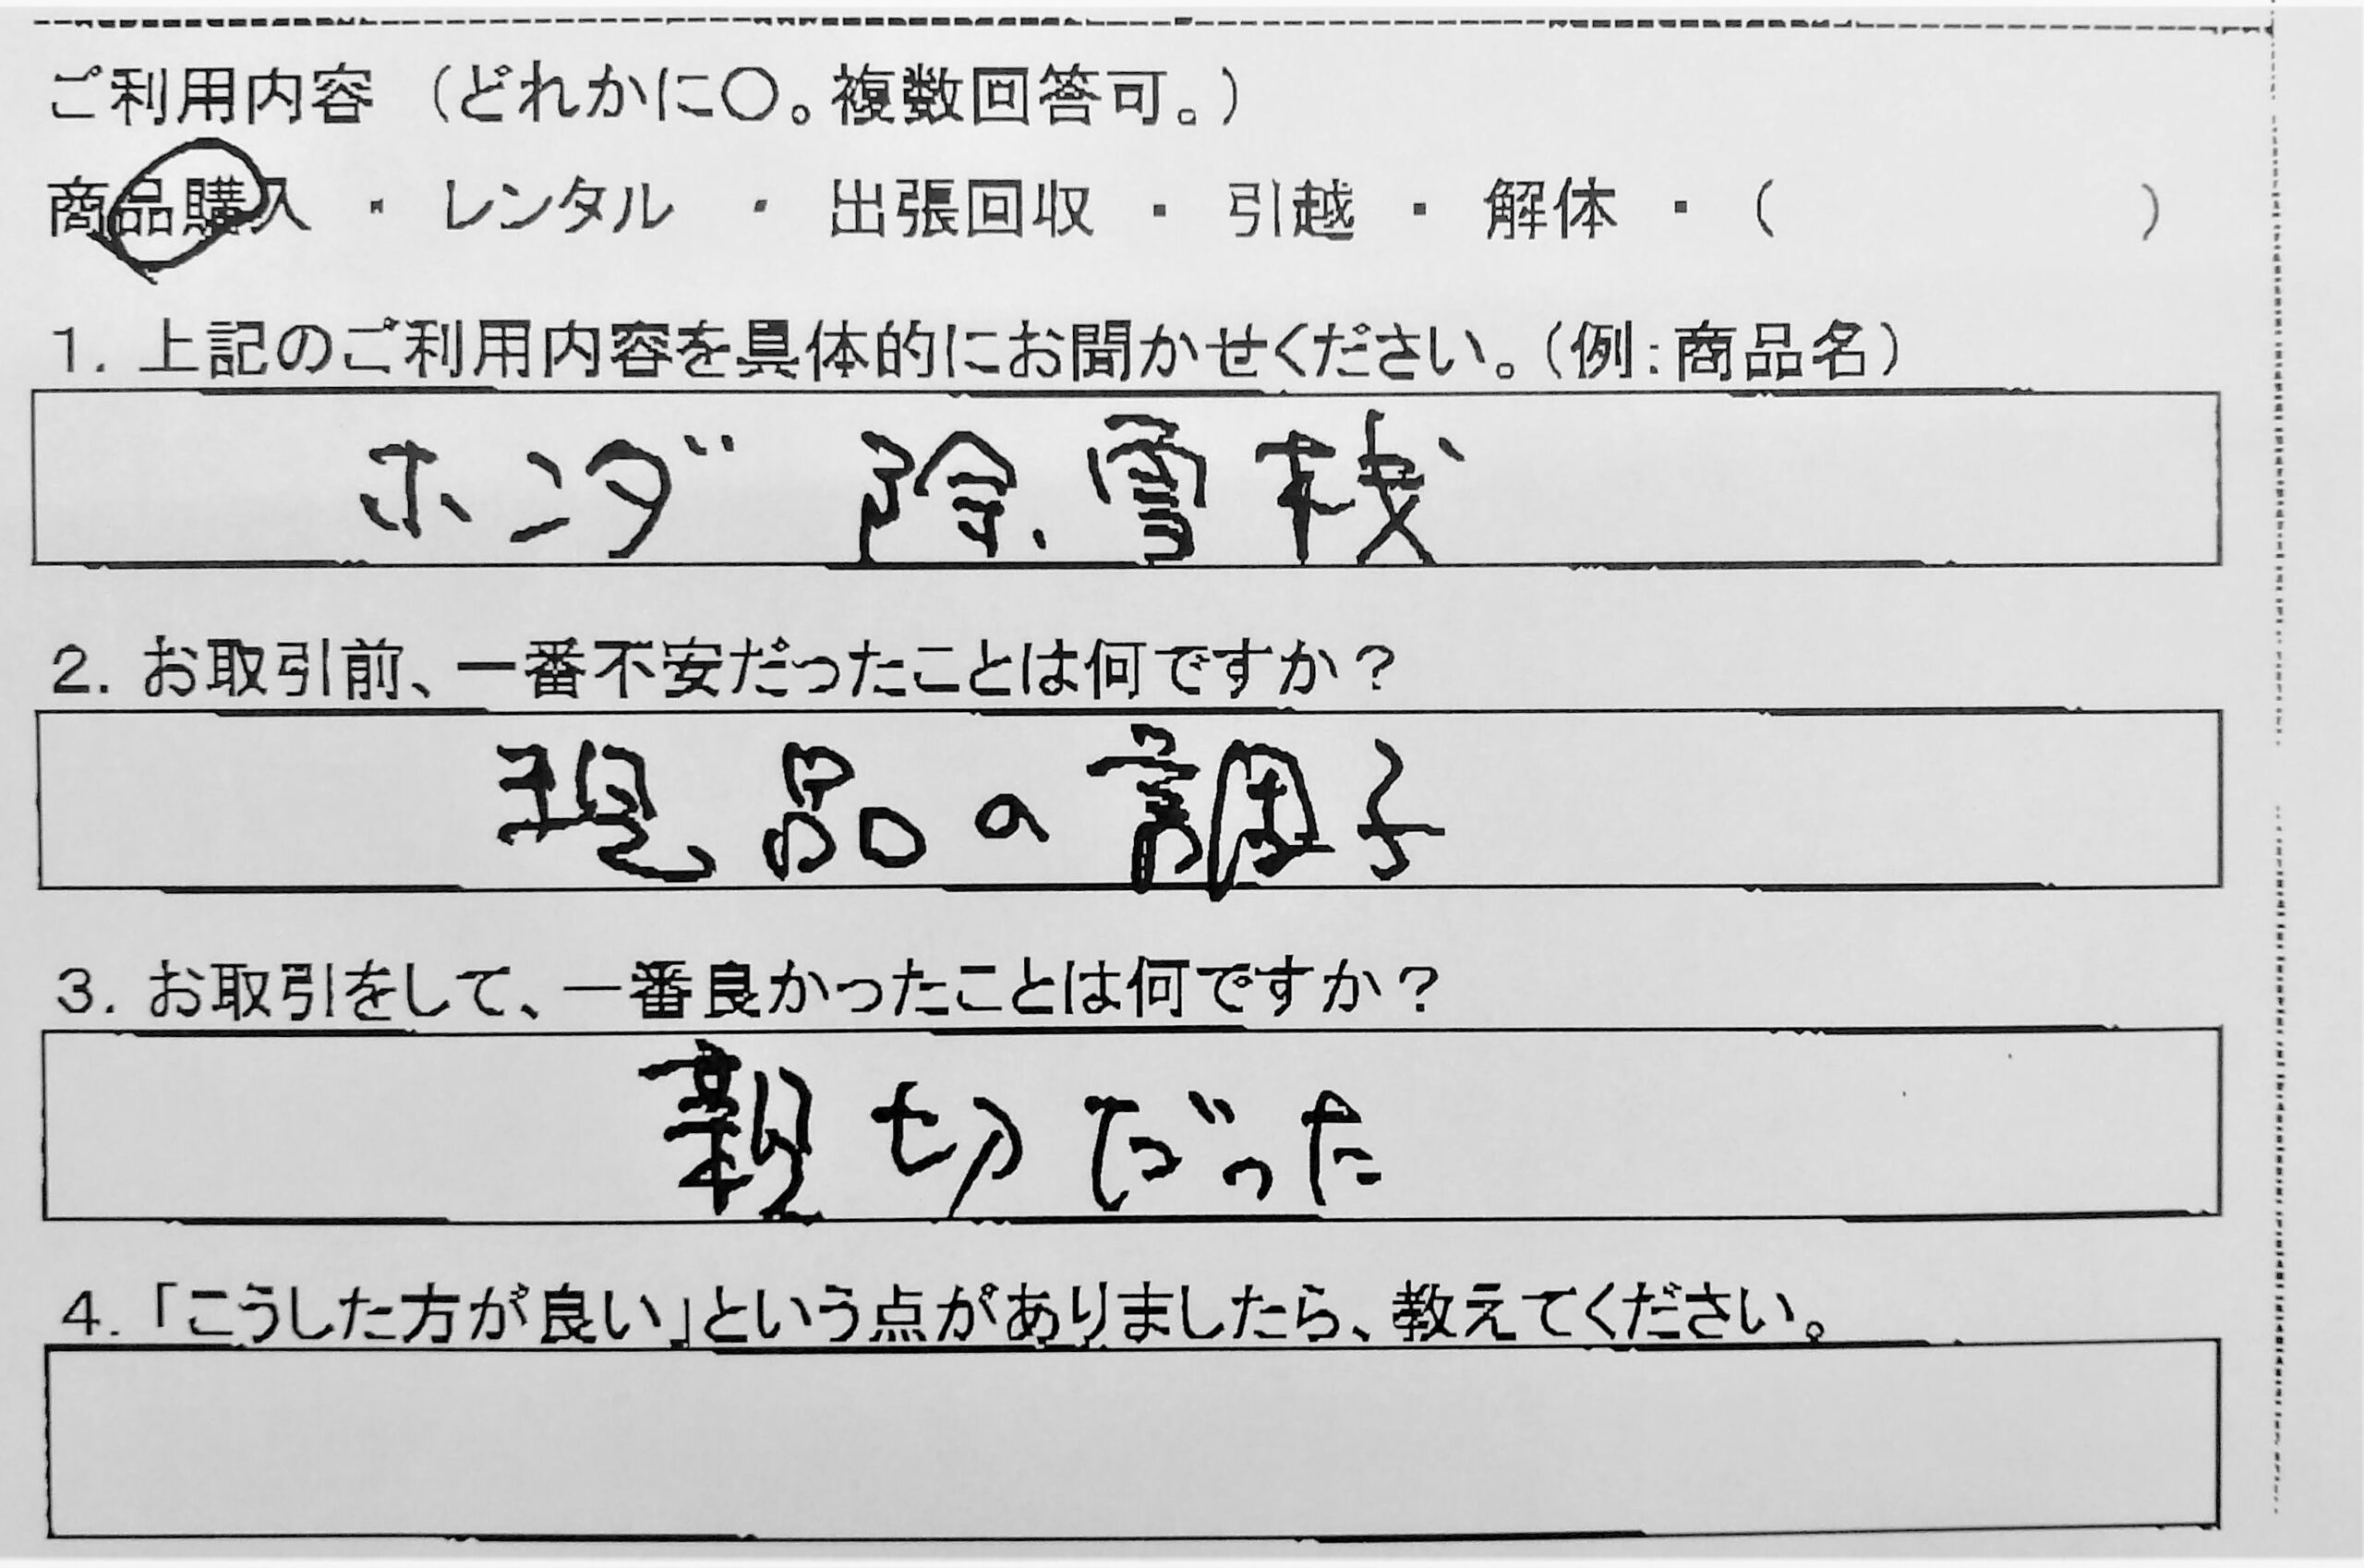 ご利用内容 (どれかに〇。複数回答可。)
商品購入 ・ レンタル ・ 出張回収 ・ 引越 ・ 解体 ・ ( )
1. 上記のご利用内容を具体的にお聞かせください。(例:商品名)
ホンダ 除雪機
2. お取引前、一番不安だったことは何ですか?
現品の調子
3. お取引をして、一番良かったことは何ですか?
親切だった
4. 「こうした方が良い」という点がありましたら、教えてください。